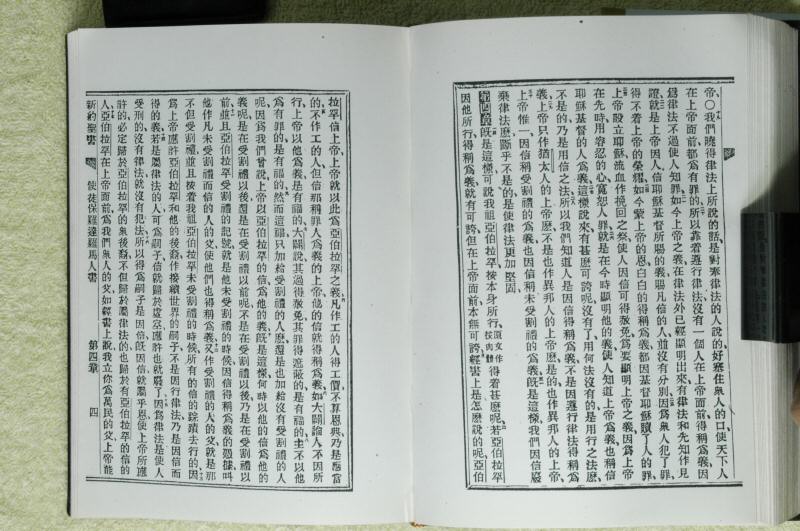 帝、○我們曉得律法上所說的話、是對奉律法的人說的、好塞住衆人的口、使天下人
在上帝面前都爲有罪的、所以靠着遵行律法、沒有一個人在上帝面前得稱爲義、因
爲律法不過使人知罪、如今上帝之義、在律法外已經顯明出來、有律法和先知作見
證、就是上帝因人信耶穌基督所賜的義、賜凡信的人、並沒有分別、因爲衆人犯了罪、
得不着上帝的榮耀、如今蒙上帝的恩、白白的得稱爲義、都因基督耶穌贖了人的罪、
上帝設立耶穌、流血作挽回之祭、使人因信可得赦免、爲要顯明上帝之義、因爲上帝
在先時用容忍的心、寬恕人罪、就是在今時顯明他的義、使人知道上帝爲義、也稱信
耶穌基督的人爲義、這樣說來、有甚麽可誇呢、沒有了、用何法沒有的、是用行之法麽、
不是的、乃是用信之法、所以我們知道人是因信得稱爲義、不是因遵行律法得稱爲
義、上帝只作猶太人的上帝麽、不是也作異邦人的上帝麽、是的、也作異邦人的上帝、
上帝惟一、因信稱受割禮的爲義、也因信稱未受割禮的爲義、旣是這樣、我們因信廢
棄律法麽、斷乎不是的、是使律法更加堅固、
第四章 旣是這樣、可說我祖亞伯拉罕、按本身所行、原文作按肉體 得着甚麽呢、若亞伯拉罕
因他所行得稱爲義、就有可誇、但在上帝面前、本無可誇、經書上是怎麽說的呢、亞伯
拉罕信上帝、上帝就以此爲亞伯拉罕之義、凡作工的人得工價、不算恩典、乃是應當
的、不作工的人、但信那稱罪人爲義的上帝、他的信就得稱爲義、如大闢論人不因所
行、上帝以他爲義是有福的、大闢說、其過得赦免、其罪得遮蔽的、是有福的、主不以他
爲有罪的、是有福的、然而這福只加給受割禮的人麽、還是也加給沒有受割禮的人
呢、因爲我們曾說、上帝以亞伯拉罕的信、爲他的義、旣是這樣、何時以他的信爲他的
義呢、是在受割禮以後、還是在受割禮以前呢、不是在受割禮以後、乃是在受割禮以
前、並且亞伯拉罕受割禮的記號、就是他未受割禮的時候、因信得稱爲義的憑據、叫
他作凡未受割禮而信的人的父、使他們也得稱爲義、又作受割禮的人的父、就是那
不但受割禮、並且按着我祖亞伯拉罕未受割禮的時候、所有的信的蹤蹟去行的、因
爲上帝應許亞伯拉罕和他的後裔、作接續世界的嗣子、不是因行律法、乃是因信而
得的義、若是屬律法的人可爲嗣子、信就歸於虛空、應許也就廢了、因爲律法是使人
受刑的、沒有律法、就沒有犯法、所以得爲嗣子是因信、旣因信就屬乎恩、使上帝所應
許的、必定歸於亞伯拉罕的衆後裔、不但歸於屬律法的、也歸於有亞伯拉罕的信的
人、亞伯拉罕在上帝面前爲我們衆人的父、如經書上說、我立你爲萬民的父、上帝能
新約聖書 使徒保羅達羅馬人書 第四章 四